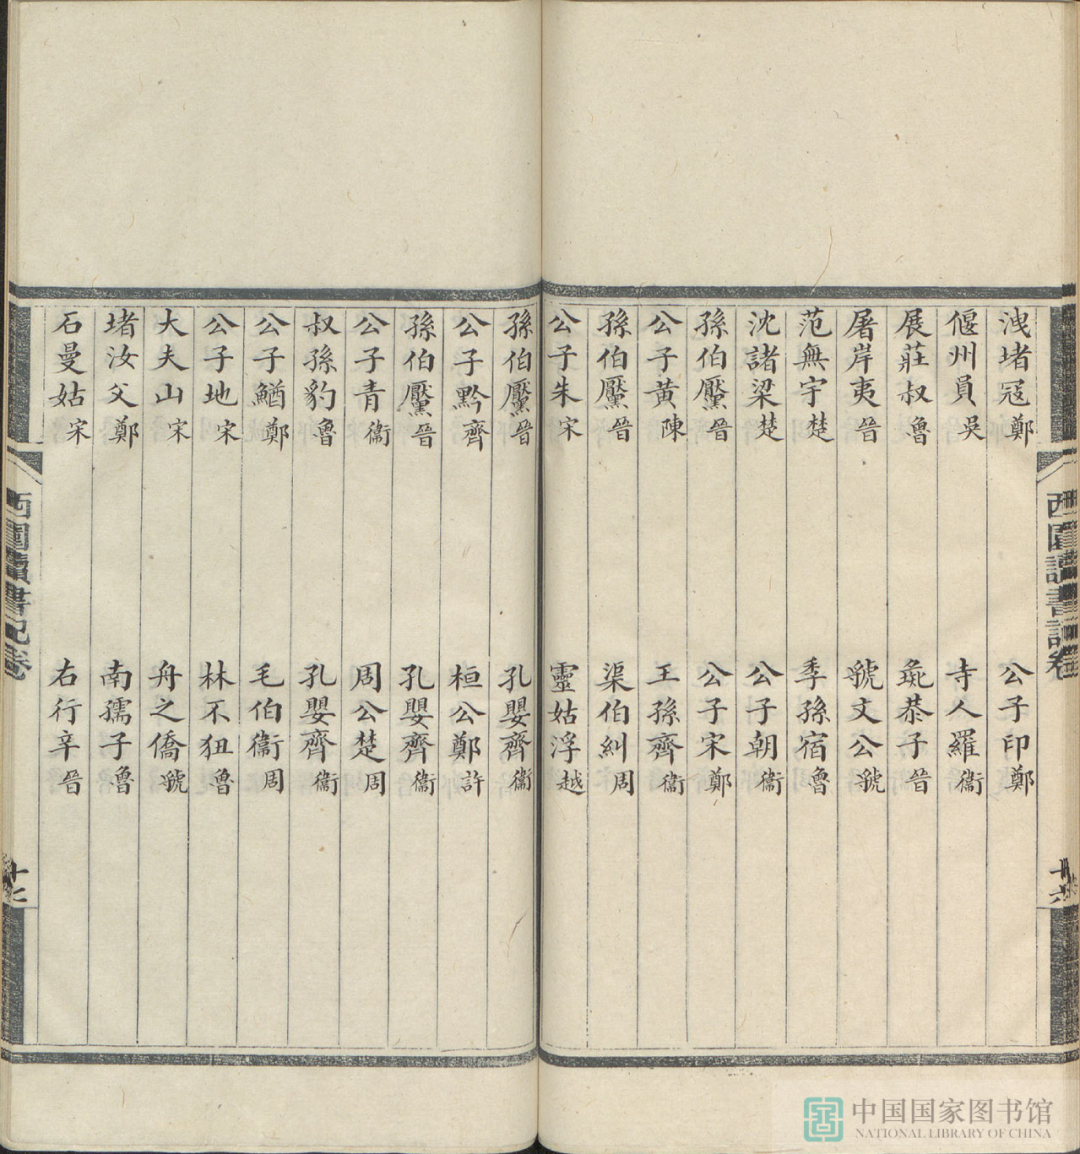 洩堵寇鄭　公子印鄭
偃州員吳　寺人羅衞
展莊叔魯　彘恭子晉
屠岸夷晉　虢文公虢
范無宇楚　季孫宿魯
沈諸梁楚　公子朝衞
孫伯黶晉　公子宋鄭
公子黃陳　王孫齊衞
孫伯黶晉　渠伯糾周
公子朱宋　靈姑浮越
孫伯黶晉　孔嬰齊衞
公子黔齊　桓公鄭許
孫伯黶晉　孔嬰齊衞
公子青衞　周公楚周
叔孫豹魯　孔嬰齊衞
公子鰌鄭　毛伯衞周
公子地宋　林不狃魯
大夫山宋　舟之僑虢
堵汝父鄭　南孺子魯
石曼姑宋　右行辛晉
西園讀書記卷
十六
西園讀書記卷
十七
中国国家图书馆
NATIONAL LIBRARY OF CHINA